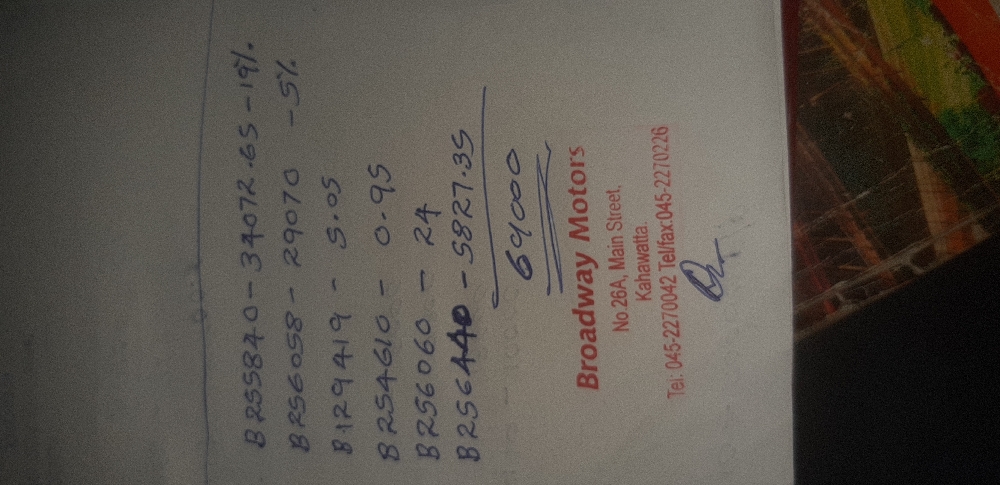 B255840 - 34072.65 - 19%.
B256058 - 29070 - 5%.
B129419 - 5.05
B254610 - 0.95
B256060 - 24
B256440 - 5827.35
69000
Broadway Motors
No 26A, Main Street,
Kahawatta.
Tel: 045-2270042 Tel/fax:045-2270226